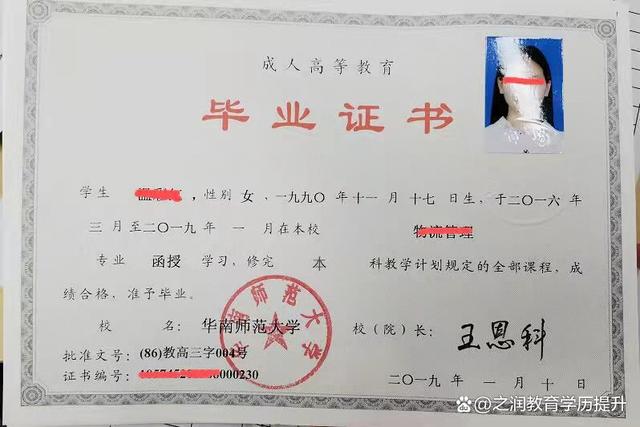 成人高等教育
毕业证书
学生 ，性别女，一九九〇年十一月十七日生，于二〇一六年
三月至二〇一九年一月在本校 物流管理
专业 函授 学习，修完 本 科教学计划规定的全部课程，成
绩合格，准予毕业。
校 名：华南师范大学 校（院）长：王恩科
华南师范大学
批准文号：(86)教高三字004号
证书编号： 0000230
二〇一九年 一月十日
@之润教育学历提升